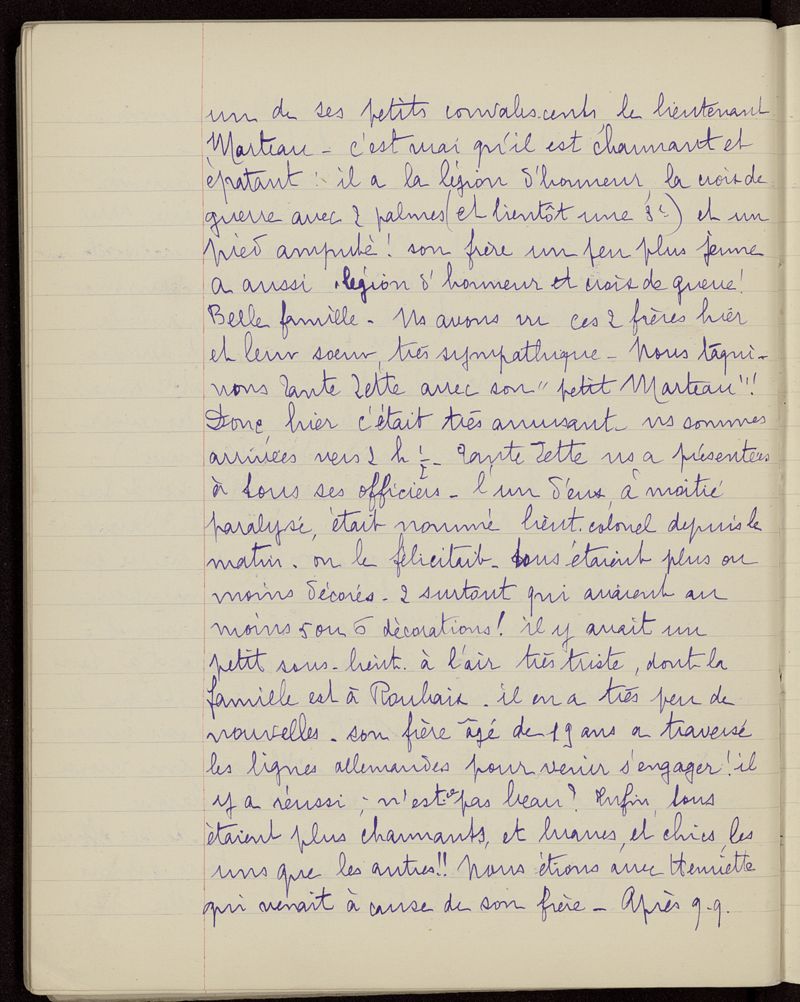 un de ses petits convalescents, le lieutenant
Marteau - c'est mai qu'il est charmant et
épatant : il a la légion d'honneur, la croix de
guerre avec 2 palmes (et bientôt une 3e) et un
pied amputé! son frère un peu plus jeune
a aussi légion d'honneur et croix de guerre!
Belle famille - Ns avons vu ces 2 frères hier
et leur soeur, très sympathique - Nous taqui-
nons Tante Zette avec son "petit Marteau"!!
Donc hier c'était très amusant - ns sommes
arrivées vers 2 h ½ - Tante Zette ns a présentées
à tous ses officiers - l'un d'eux, à moitié
paralysé, était nommé lieut. colonel depuis le
matin. on le félicitait - tous étaient plus ou
moins décorés - 2 surtout qui avaient au
moins 5 ou 6 décorations! il y avait un
petit sous-lieut. à l'air très triste, dont la
famille est à Roubaix. il en a très peu de
nouvelles - son frère âgé de 19 ans a traversé
les lignes allemandes pour venir s'engager! il
y a réussi ; n'est-ce pas beau? Enfin, tous
étaient plus charmants, et braves, et chics, les
uns que les autres!! Nous étions avec Henriette
qui venait à cause de son frère - Après q.q.